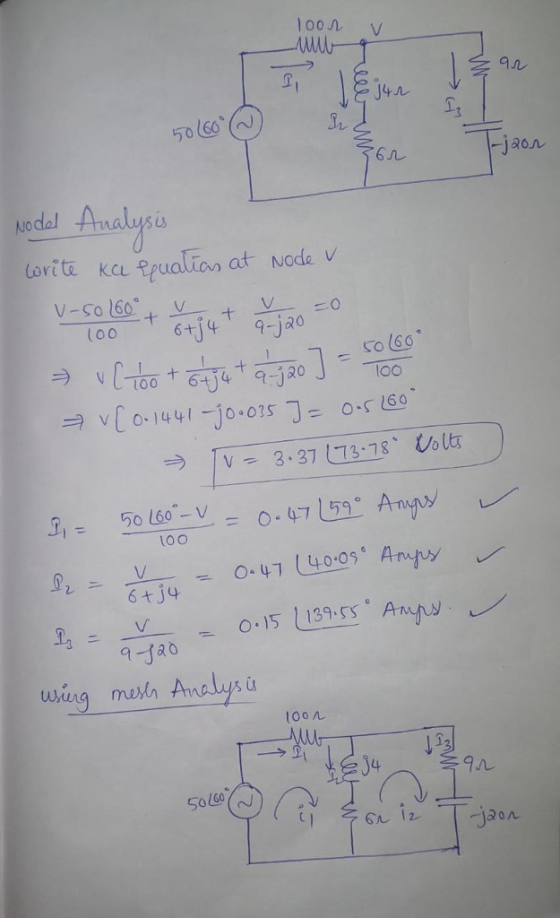 100Ω V
I₁ I₂ j4Ω I₃ 9Ω
50∠60° ~ 6Ω -j20Ω
Nodal Analysis
Write KCL Equation at Node V
V-50∠60°/100 + V/6+j4 + V/9-j20 = 0
⇒ V[1/100 + 1/6+j4 + 1/9-j20] = 50∠60°/100
⇒ V[0.1441 - j0.035] = 0.5∠60°
⇒ V = 3.37∠73.78° Volts
I₁ = 50∠60°-V/100 = 0.47∠59° Amps ✓
I₂ = V/6+j4 = 0.47∠40.09° Amps ✓
I₃ = V/9-j20 = 0.15∠139.55° Amps. ✓
Using mesh Analysis
100Ω
I₁ I₂ j4 I₃ 9Ω
50∠60° ~ i₁ 6Ω i₂ -j20Ω